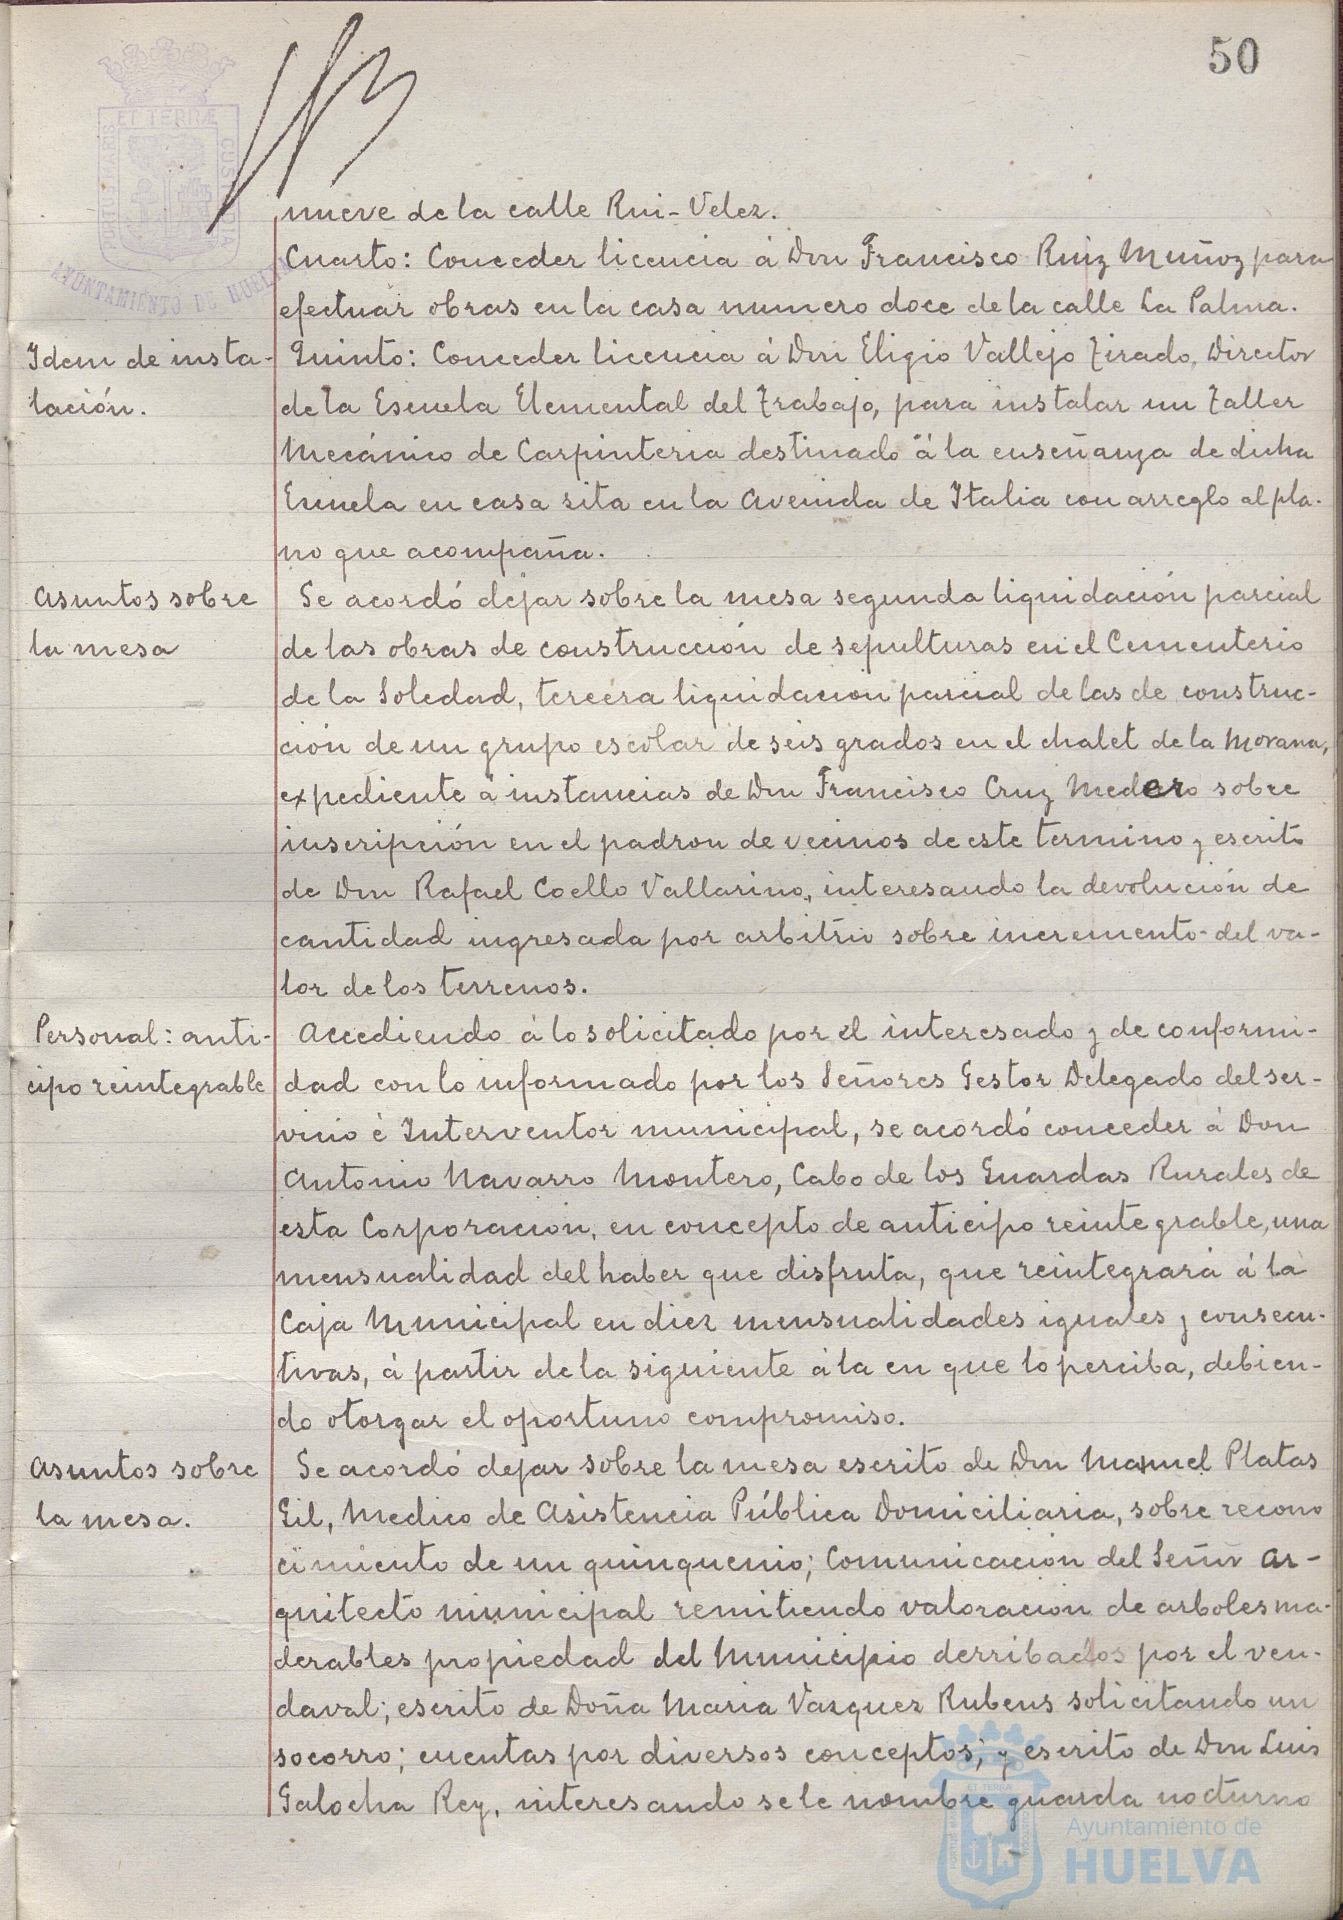 50
PORTUS MARIS
ET TERRÆ
CUSTODIA
AYUNTAMIENTO DE HUELVA
nueve de la calle Rui-Velez.
Cuarto: Conceder licencia á Don Francisco Ruiz Muñoz para
efectuar obras en la casa numero doce de la calle La Palma.
Idem de insta-
lación.
Quinto: Conceder licencia á Don Eligio Vallejo Tirado, Director
de la Escuela Elemental del Trabajo, para instalar un Taller
Mecánico de Carpinteria destinado á la enseñanza de dicha
Escuela en casa sita en la Avenida de Italia con arreglo al pla-
no que acompaña.
Asuntos sobre
la mesa
Se acordó dejar sobre la mesa segunda liquidación parcial
de las obras de construcción de sepulturas en el Cementerio
de la Soledad, tercera liquidacion parcial de las de construc-
ción de un grupo escolar de seis grados en el chalet de la Morana,
expediente á instancias de Don Francisco Cruz Medero sobre
inscripción en el padron de vecinos de este termino y escrito
de Don Rafael Coello Vallarino, interesando la devolución de
cantidad ingresada por arbitrio sobre incremento del va-
lor de los terrenos.
Personal: anti-
cipo reintegrable
Accediendo á lo solicitado por el interesado y de conformi-
dad con lo informado por los Señores Gestor Delegado del ser-
vicio é Interventor municipal, se acordó conceder á Don
Antonio Navarro Montero, Cabo de los Guardas Rurales de
esta Corporacion, en concepto de anticipo reintegrable, una
mensualidad del haber que disfruta, que reintegrará á la
Caja Municipal en diez mensualidades iguales y consecu-
tivas, á partir de la siguiente á la en que lo perciba, debien-
do otorgar el oportuno compromiso.
Asuntos sobre
la mesa.
Se acordó dejar sobre la mesa escrito de Don Manuel Platas
Gil, Medico de Asistencia Pública Domiciliaria, sobre recono
cimiento de un quinquenio; Comunicacion del Señor Ar-
quitecto municipal remitiendo valoracion de arboles ma-
derables propiedad del Municipio derribados por el ven-
daval; escrito de Doña Maria Vazquez Rubens solicitando un
socorro; cuentas por diversos conceptos; y escrito de Don Luis
Galocha Rey, interesando se le nombre guarda nocturno
Ayuntamiento de
HUELVA